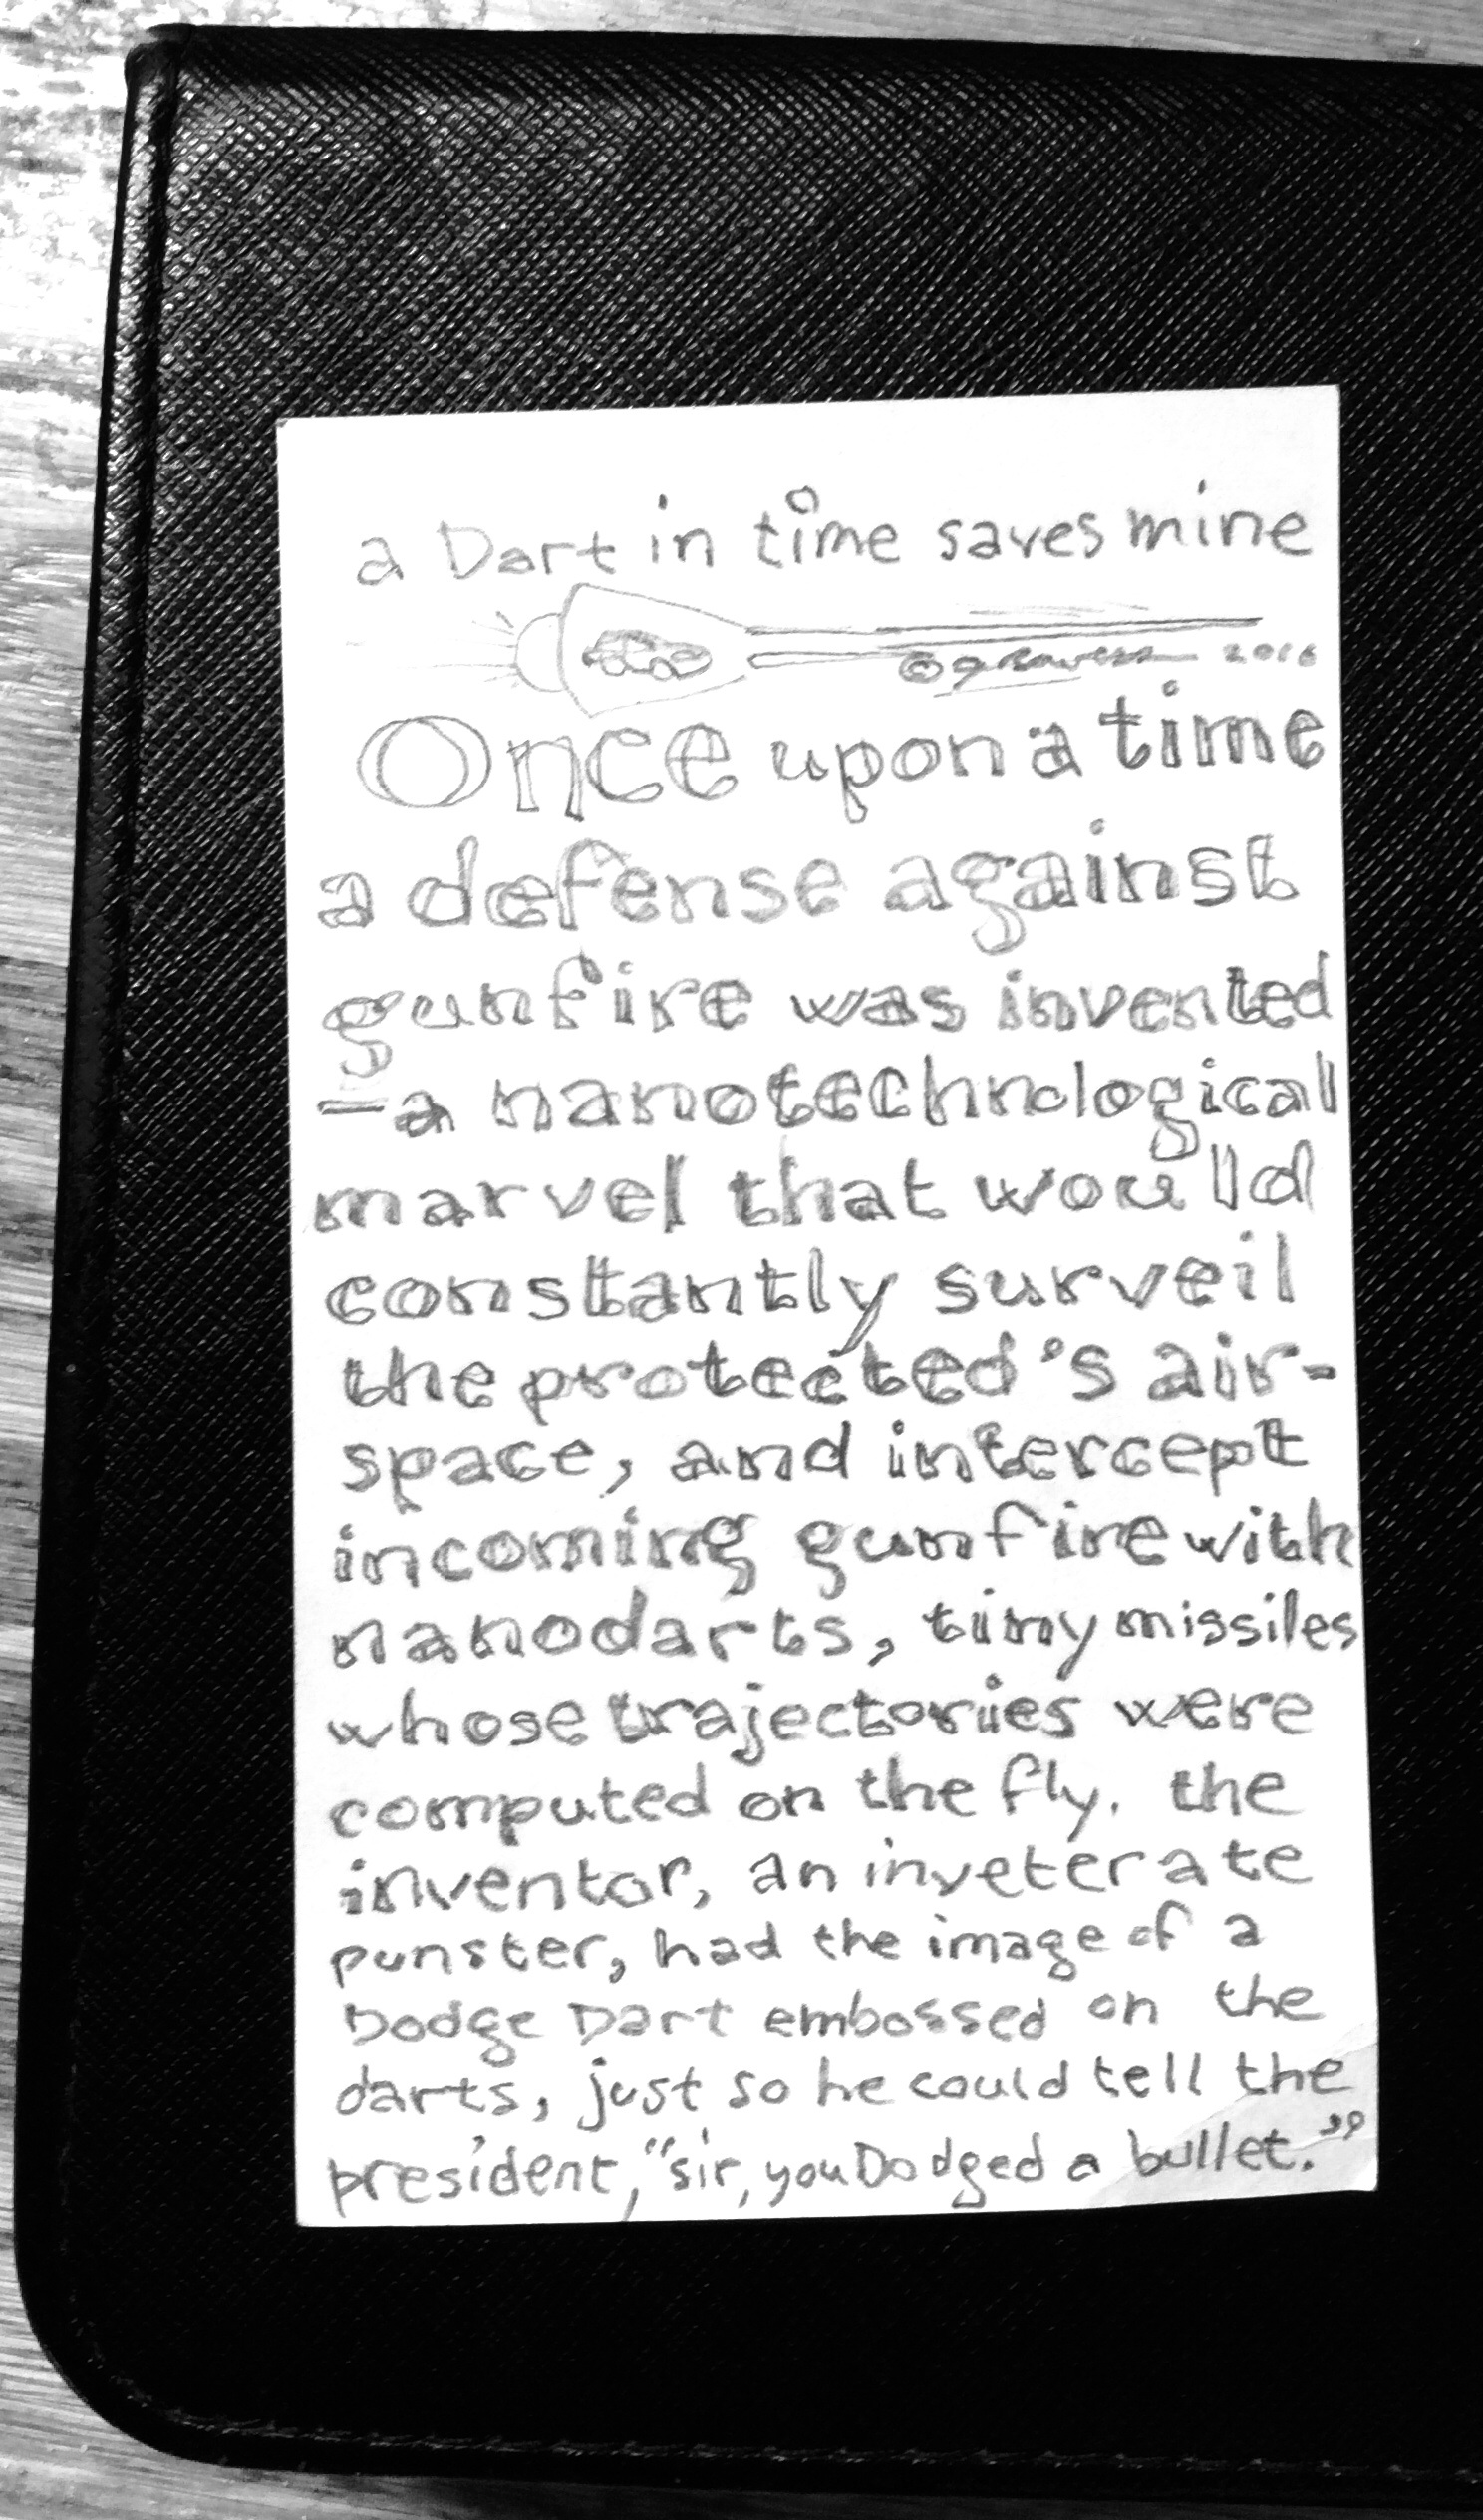 a Dart in time saves mine
© 2016
Once upon a time
a defense against
gunfire was invented
—a nanotechnological
marvel that would
constantly surveil
the protected's air-
space, and intercept
incoming gunfire with
nanodarts, tiny missiles
whose trajectories were
computed on the fly. the
inventor, an inveterate
punster, had the image of a
Dodge Dart embossed on the
darts, just so he could tell the
president, "sir, you Dodged a bullet."